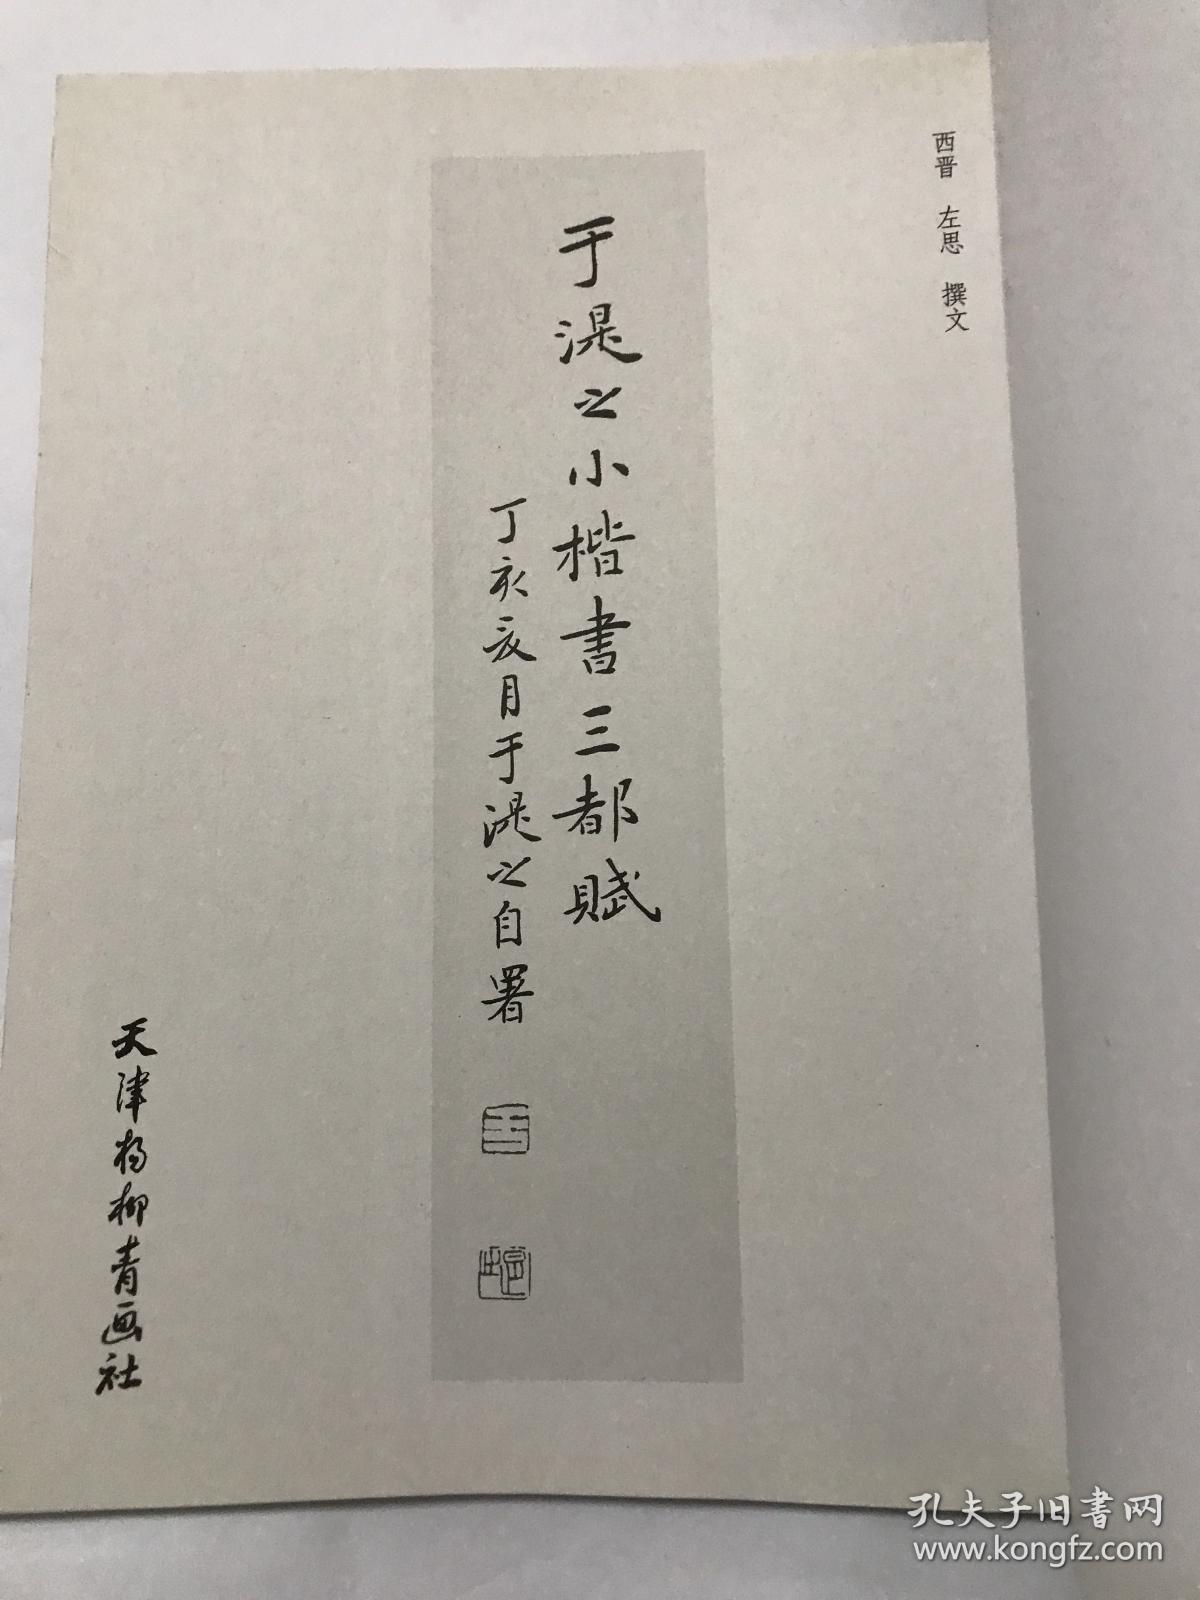 西晋 左思 撰文
于湜之小楷書三都賦
丁亥夏月于湜之自署
天津杨柳青画社
孔夫子旧書网
www.kongfz.com